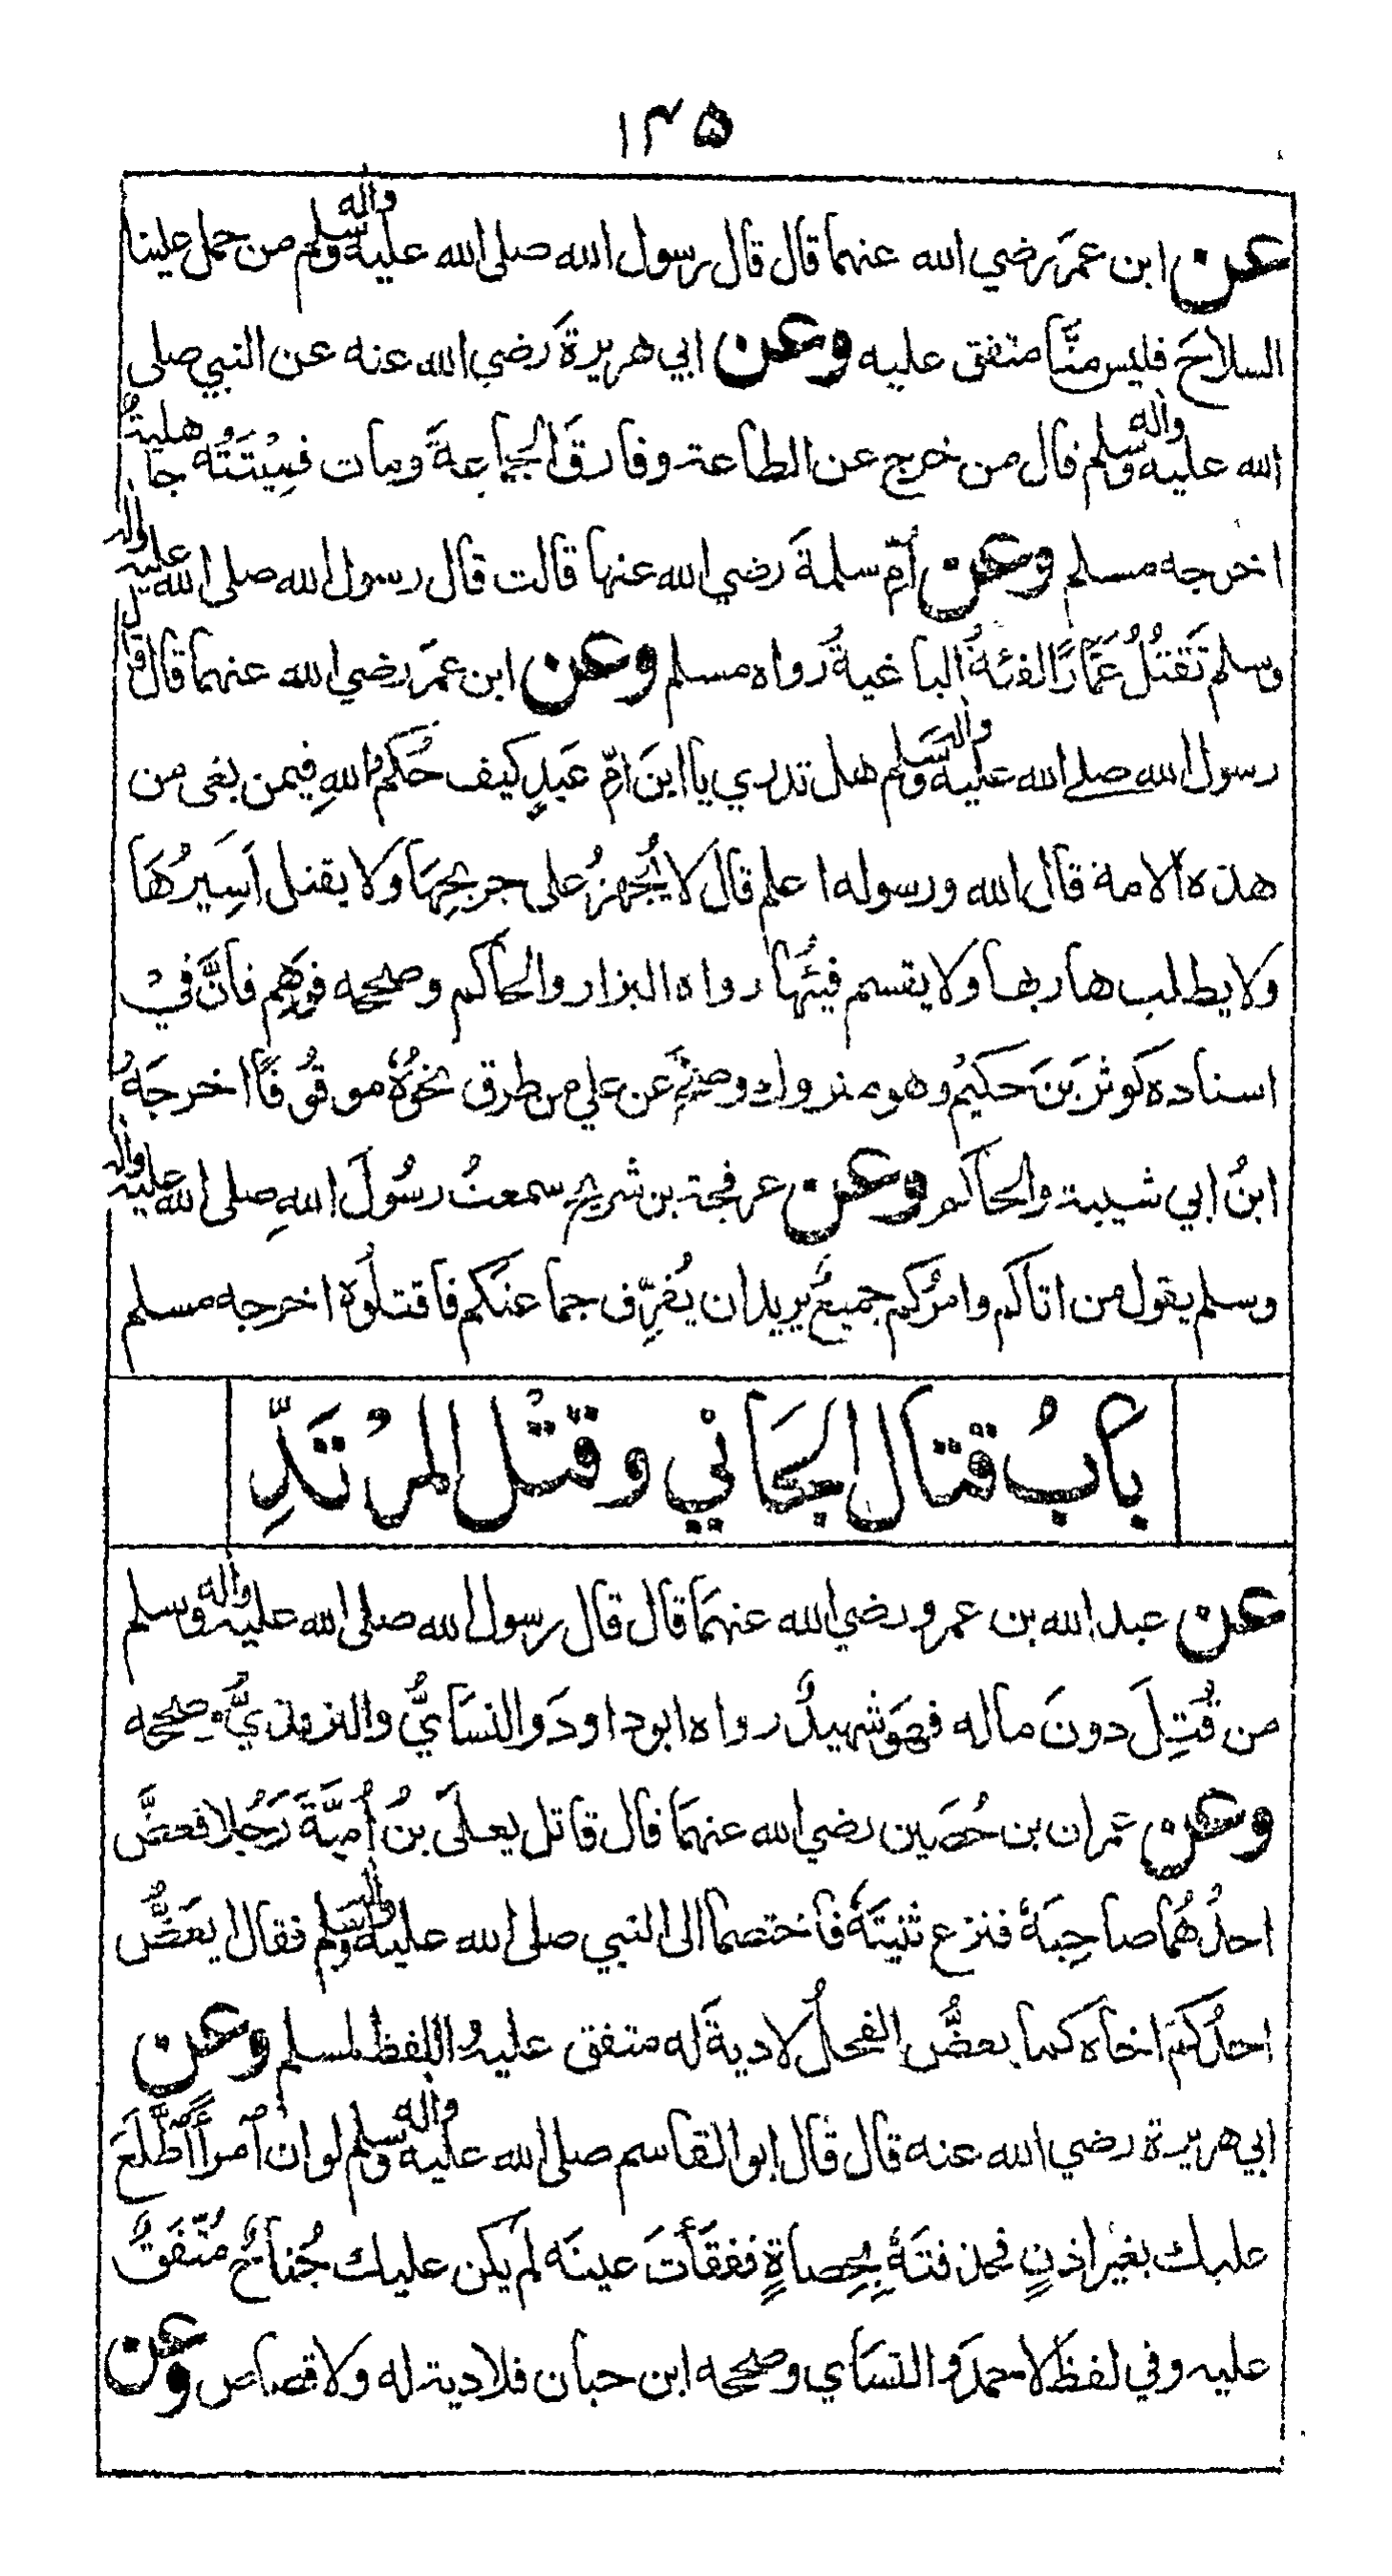 ١٣٥
عن ابن عمَر رضي الله عنهما قال قال رسول الله صلى الله عليه واله وسلم من حمل علينا
السلاحَ فليس منَّا متفق عليه وعن ابي هريرةَ رضي الله عنه عن النبي صلى
الله عليه واله وسلم قال من خرج عن الطاعة وفارقَ الجماعةَ ومات فمِيْتَتُه جاهليةٌ
اخرجه مسلم وعن اُمِّ سلمةَ رضي الله عنها قالت قال رسول الله صلى الله عليه واله
وسلم تَقتُلُ عَمَّارًا الفئةُ الباغيةُ رواه مسلم وعن ابن عمَر رضي الله عنهما قال قال
رسول الله صلى الله عليه واله وسلم هل تدري يا ابنَ امِّ عَبدٍ كيف حُكمُ اللهِ فيمن بغى من
هذه الامة قال الله ورسوله اعلم قال لا يُجهزُ على جريحِهَا ولا يقتل اَسِيرُهَا
ولا يطلب هاربها ولا يقسم فيئُها رواه البزار والحاكم وصححه فوَهِم فانَّ في
اسناده كوثَر بَنَ حكيمُ وهو متروك وصَحَّ عن علي من طرق نحوُهٗ موقُوفًا اخرجَهُ
ابنُ ابي شيبة والحاكم وعن عرفجة بن شريحٍ سمعتُ رسُولَ اللهِ صلى الله عليه واله
وسلم يقول من اتاكم وامرُكم جميعٌ يريد ان يُفرِّق جماعتَكم فاقتلُوه اخرجه مسلم
بَابُ قتال الجَانِي وقتْل المرْتَدِّ
عن عبد الله بن عمرو رضي الله عنهمَا قال قال رسول الله صلى الله عليه واله وسلم
من قُتِلَ دونَ ماله فهوَ شهيدٌ رواه ابو داودَ والنسَايُّ والترمذيُّ وصححه
وعن عمران بن حُصَين رضي الله عنهمَا قال قاتل يعلَى بنُ اُميَّةَ رَجُلا فعضَّ
احدُهُمَا صاحِبَهٗ فنزع ثنيتَهٗ فاختصما الى النبي صلى الله عليه واله وسلم فقال ايعَضُّ
احدُكمَ اخاه كما يعضُّ الفحلُ لا ديةَ له متفق عليهِ واللفظ لمسلم وعن
ابي هريرة رضي الله عنه قال قال ابو القاسم صلى الله عليه واله وسلم لو ان امرأً اطَّلعَ
عليك بغير اذنٍ فحذفتَهٗ بِحصاةٍ ففقَأتَ عينَه لم يكن عليك جُناحٌ مُتَّفقٌ
عليه وفي لفظ لاحمدَ والنسَاي وصححه ابن حبان فلا دية له ولا قصاص وعن